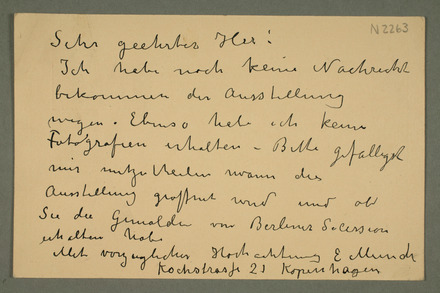 N 2263
Sehr geehrter Herr!
Ich habe noch keine Nachricht
bekommen der Ausstellung
wegen. Ebenso habe ich keine
Fotografien erhalten – Bitte gefälligst
mir mitzutheilen wann die
Ausstellung geöffnet wird und ob
Sie die Gemälden von Berliner Secession
erhalten habe
Mit vorzüglicher Hochachtung E Munch
Kochstrasse 21 Kopenhagen